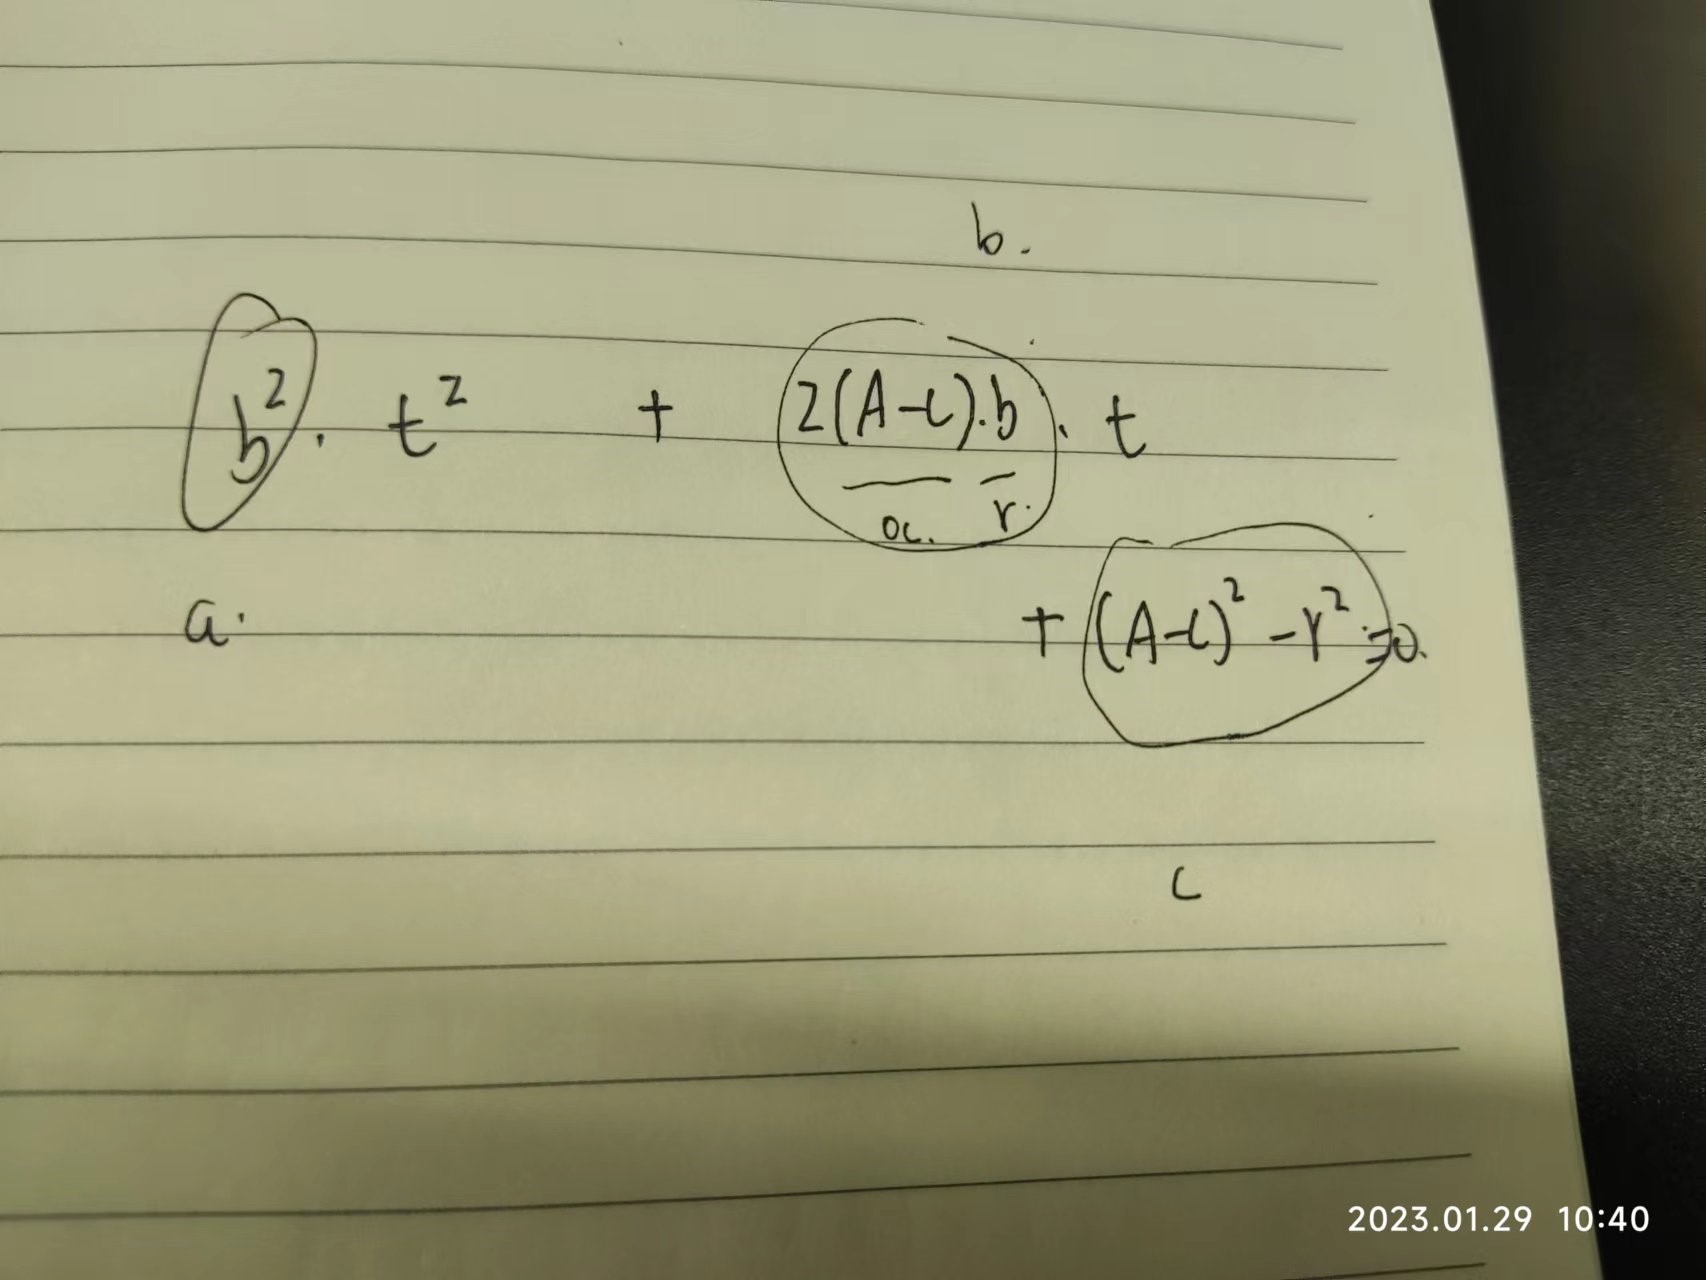 b.
b² · t² + 2(A-C)·b · t
oc. r.
a. + (A-C)² - r² = 0.
c
2023.01.29 10:40